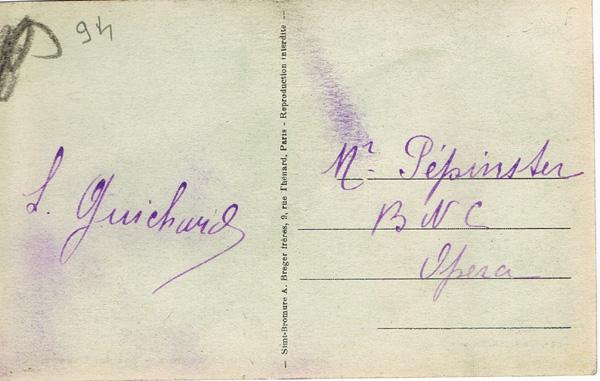 94
L. Guichard
— Simi-Bromure A. Breger frères, 9, rue Thénard, Paris - Reproduction interdite —
Mr. Pépinster
B N C
Opera